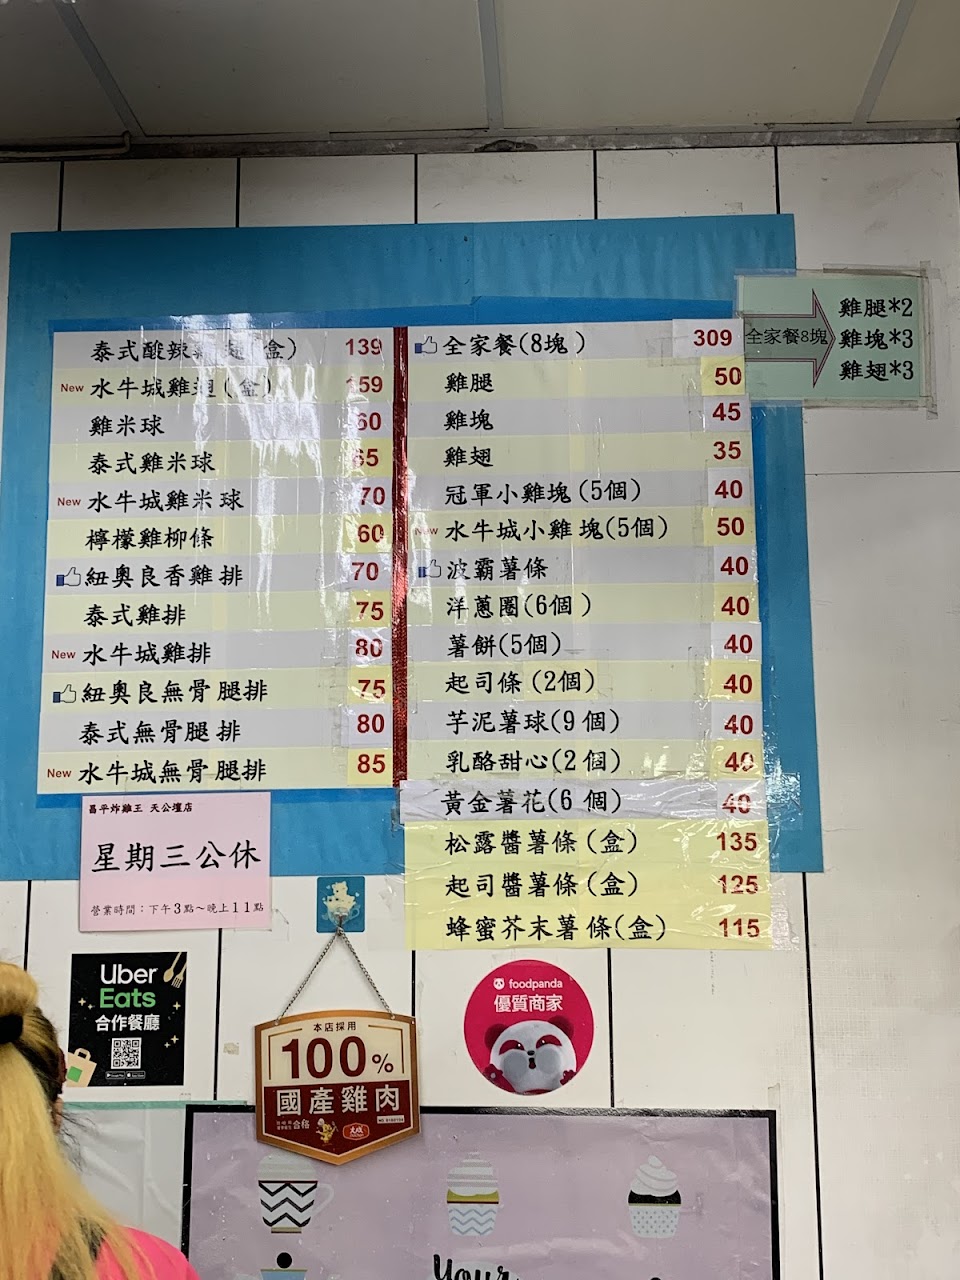 泰式酸辣雞翅(盒) 139
New 水牛城雞翅(盒) 159
雞米球 60
泰式雞米球 65
New 水牛城雞米球 70
檸檬雞柳條 60
紐奧良香雞排 70
泰式雞排 75
New 水牛城雞排 80
紐奧良無骨腿排 75
泰式無骨腿排 80
New 水牛城無骨腿排 85
全家餐(8塊) 309
雞腿 50
雞塊 45
雞翅 35
冠軍小雞塊(5個) 40
New 水牛城小雞塊(5個) 50
波霸薯條 40
洋蔥圈(6個) 40
薯餅(5個) 40
起司條(2個) 40
芋泥薯球(9個) 40
乳酪甜心(2個) 40
黃金薯花(6個) 40
松露醬薯條(盒) 135
起司醬薯條(盒) 125
蜂蜜芥末薯條(盒) 115
全家餐8塊
雞腿*2
雞塊*3
雞翅*3
昌平炸雞王 天公壇店
星期三公休
營業時間:下午3點~晚上11點
Uber
Eats
合作餐廳
本店採用
100%
國產雞肉
合格
大成
foodpanda
優質商家
Your